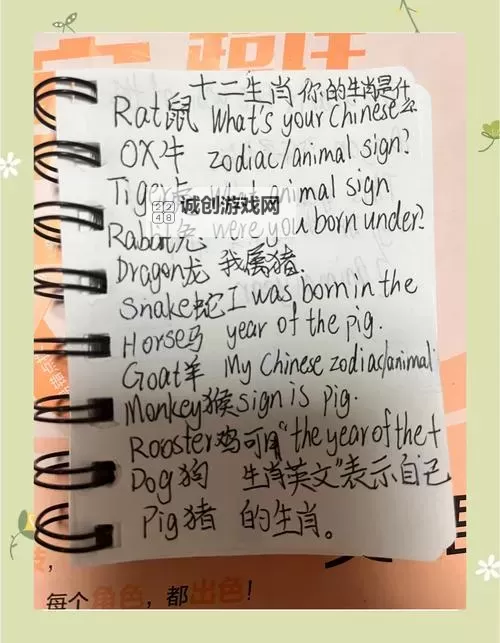 十二生肖 你的生肖是什么
Rat鼠 What's your Chinese
OX牛 zodiac/animal sign?
Tiger虎 What animal sign
诚创游戏网
Rabbit兔 were you born under?
Dragon龙 我属猪.
Snake蛇 I was born in the
Horse马 year of the pig.
Goat羊 My Chinese zodiac/animal
Monkey猴 sign is pig.
Rooster鸡 可用"the year of the+
Dog狗 生肖英文"表示自己
Pig猪 的生肖。
每个角色，都出色!